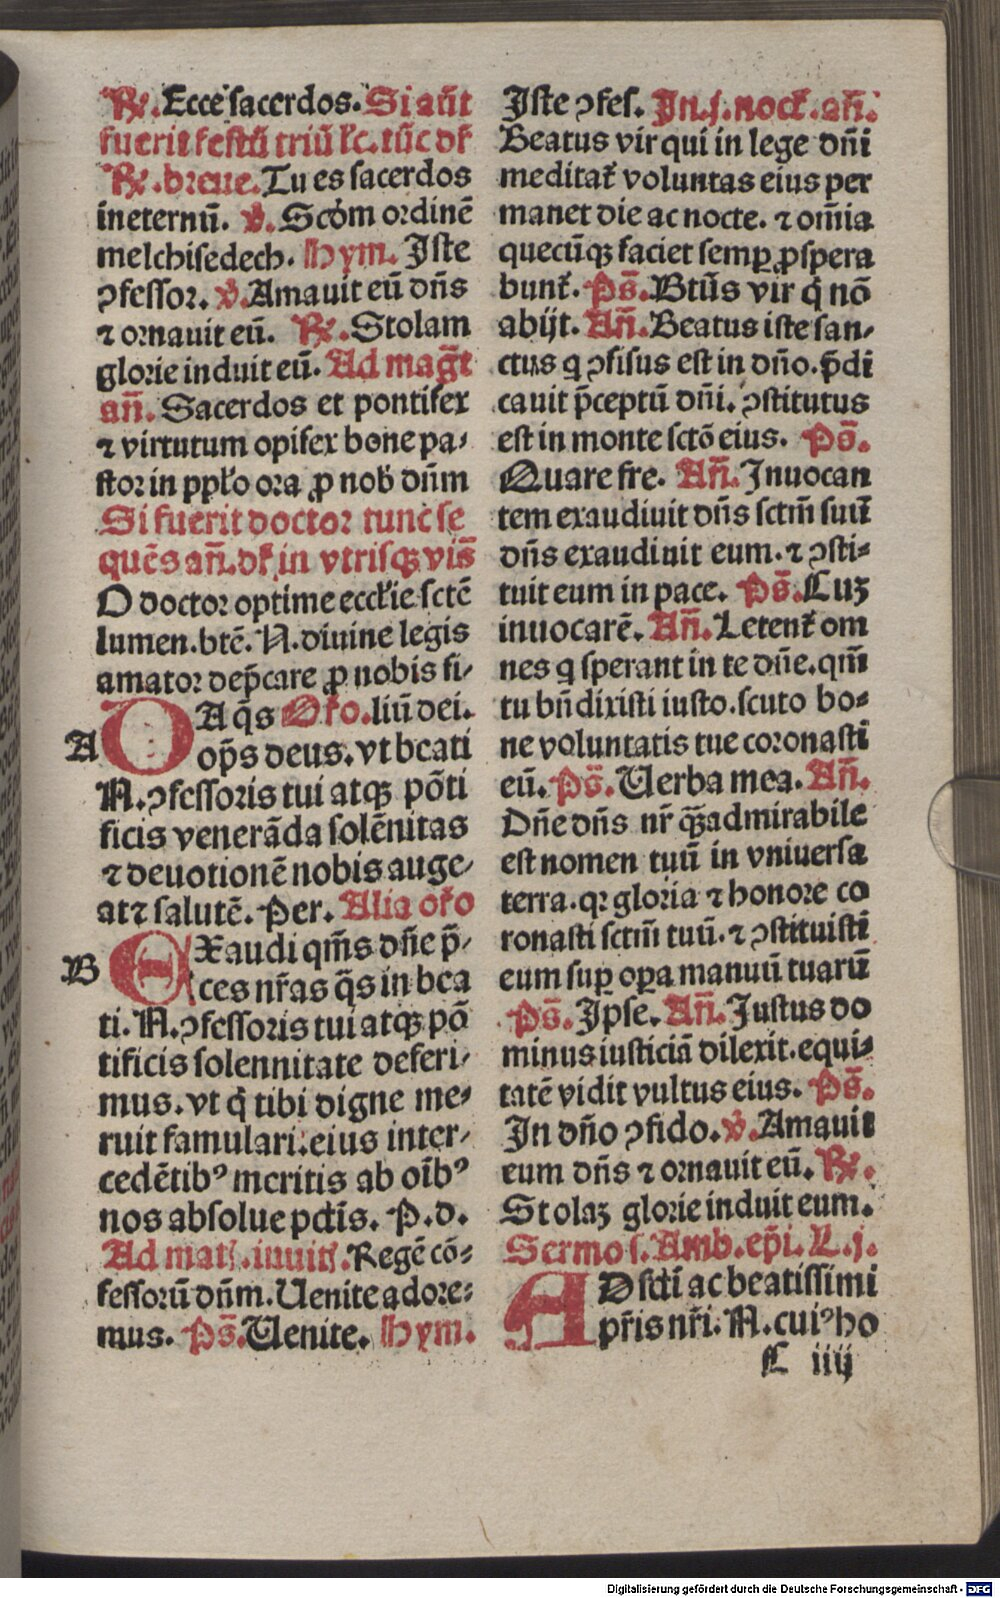 ℟. Ecce sacerdos. Si aūt
fuerit festū triū lc. tūc dr̄
℟. breue. Tu es sacerdos
ineternū. ℣. Scd̄m ordinē
melchisedech. Hym. Iste
ↄfessor. ℣. Amauit eū dn̄s
⁊ ornauit eū. ℟. Stolam
glorie induit eū. Ad magt̄
an̄. Sacerdos et pontifex
⁊ virtutum opifex bone pa-
stor in ppl̄o ora ꝓ nob̄ dn̄m
Si fuerit doctor tunc se
quēs an̄. dr̄ in vtrisqꝫ vis̄
O doctor optime eccl̄ie sctē
lumen. btē. N. diuine legis
amator dep̄care ꝓ nobis fi-
A
DA q̄s Or̄o. liū dei.
op̄s deus. vt beati
N. ↄfessoris tui atqꝫ pōti
ficis venerāda solēnitas
⁊ deuotionē nobis auge-
at ⁊ salutē. Per. Alia or̄o
B
EXaudi qm̄s dn̄e p̄-
ces nr̄as q̄s in bea
ti. N. ↄfessoris tui atqꝫ pō
tificis solennitate deferi-
mus. vt q̄ tibi digne me-
ruit famulari. eius inter-
cedētibꝰ meritis ab oīb̄ꝰ
nos absolue pct̄is. P. d.
Ad mat̄. inuit̄. Regē cō-
fessorū dn̄m. Uenite adore-
mus. Ps̄. Uenite. Hym.
Iste ↄfes. In. j. noct̄. an̄.
Beatus vir qui in lege dn̄i
meditat̄ voluntas eius per
manet die ac nocte. ⁊ om̄ia
quecūqꝫ faciet semꝑ ꝓspera
bunt̄. Ps̄. Bt̄us vir q̄ nō
abijt. An̄. Beatus iste san-
ctus q ↄfisus est in dn̄o. p̄di
cauit p̄ceptū dn̄i. ↄstitutus
est in monte sctō eius. Ps̄.
Quare fre. An̄. Inuocan
tem exaudiuit dn̄s sctm̄ suū
dn̄s exaudiuit eum. ⁊ ↄsti-
tuit eum in pace. Ps̄. Cuꝫ
inuocarē. An̄. Letent̄ om
nes q sperant in te dn̄e. qm̄
tu bn̄dixisti iusto. scuto bo-
ne voluntatis tue coronasti
eū. Ps̄. Uerba mea. An̄.
Dn̄e dn̄s nr̄ qꝫ̄ admirabile
est nomen tuū in vniuersa
terra. qꝛ gloria ⁊ honore co
ronasti sctm̄ tuū. ⁊ ↄstituisti
eum suꝑ oꝑa manuū tuarū
Ps̄. Ipse. An̄. Iustus do
minus iusticiā dilexit. equi-
tatē vidit vultus eius. Ps̄.
In dn̄o ↄfido. ℣. Amauit
eum dn̄s ⁊ ornauit eū. ℟.
Stolaꝫ glorie induit eum.
Sermo s. Amb. ep̄i. L. j.
AD sct̄i ac beatissimi
pr̄is nr̄i. N. cuiꝰ ho
C iiij
Digitalisierung gefördert durch die Deutsche Forschungsgemeinschaft - DFG